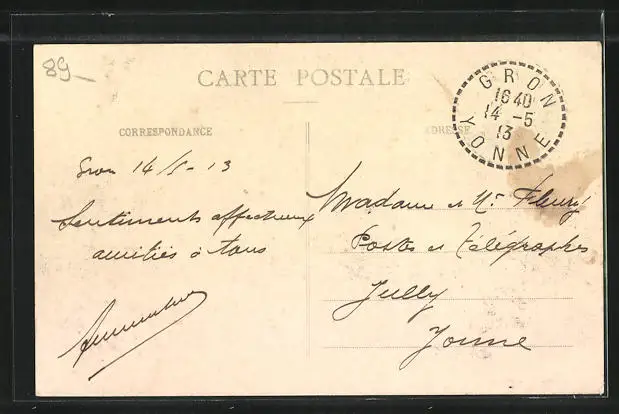 89
CARTE POSTALE
GRON
16 40
14 -5
13
YONNE
CORRESPONDANCE
ADRESSE
Gron 14/5-13
Sentiments affectueux
amitiés à tous
Madame et Mr Fleury
Postes et Télégraphes
Jully
Yonne